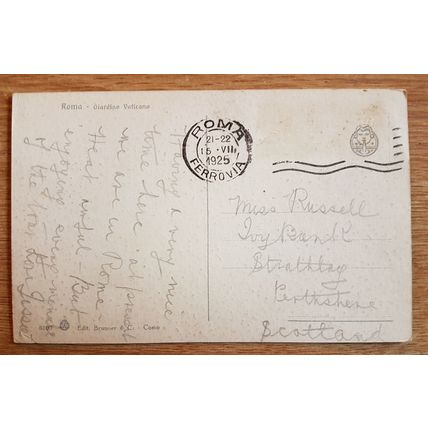 Roma - Giardino Vaticano
ROMA
21-22
15 · VIII
1925
FERROVIA
Having a very nice
time here. at present
we are in Rome -
Heat awful - But
enjoying every minute
of the
Miss Russell
Ivy Bank
Strathtay
Perthshire
Scotland
Edit. Brunner & C. - Como